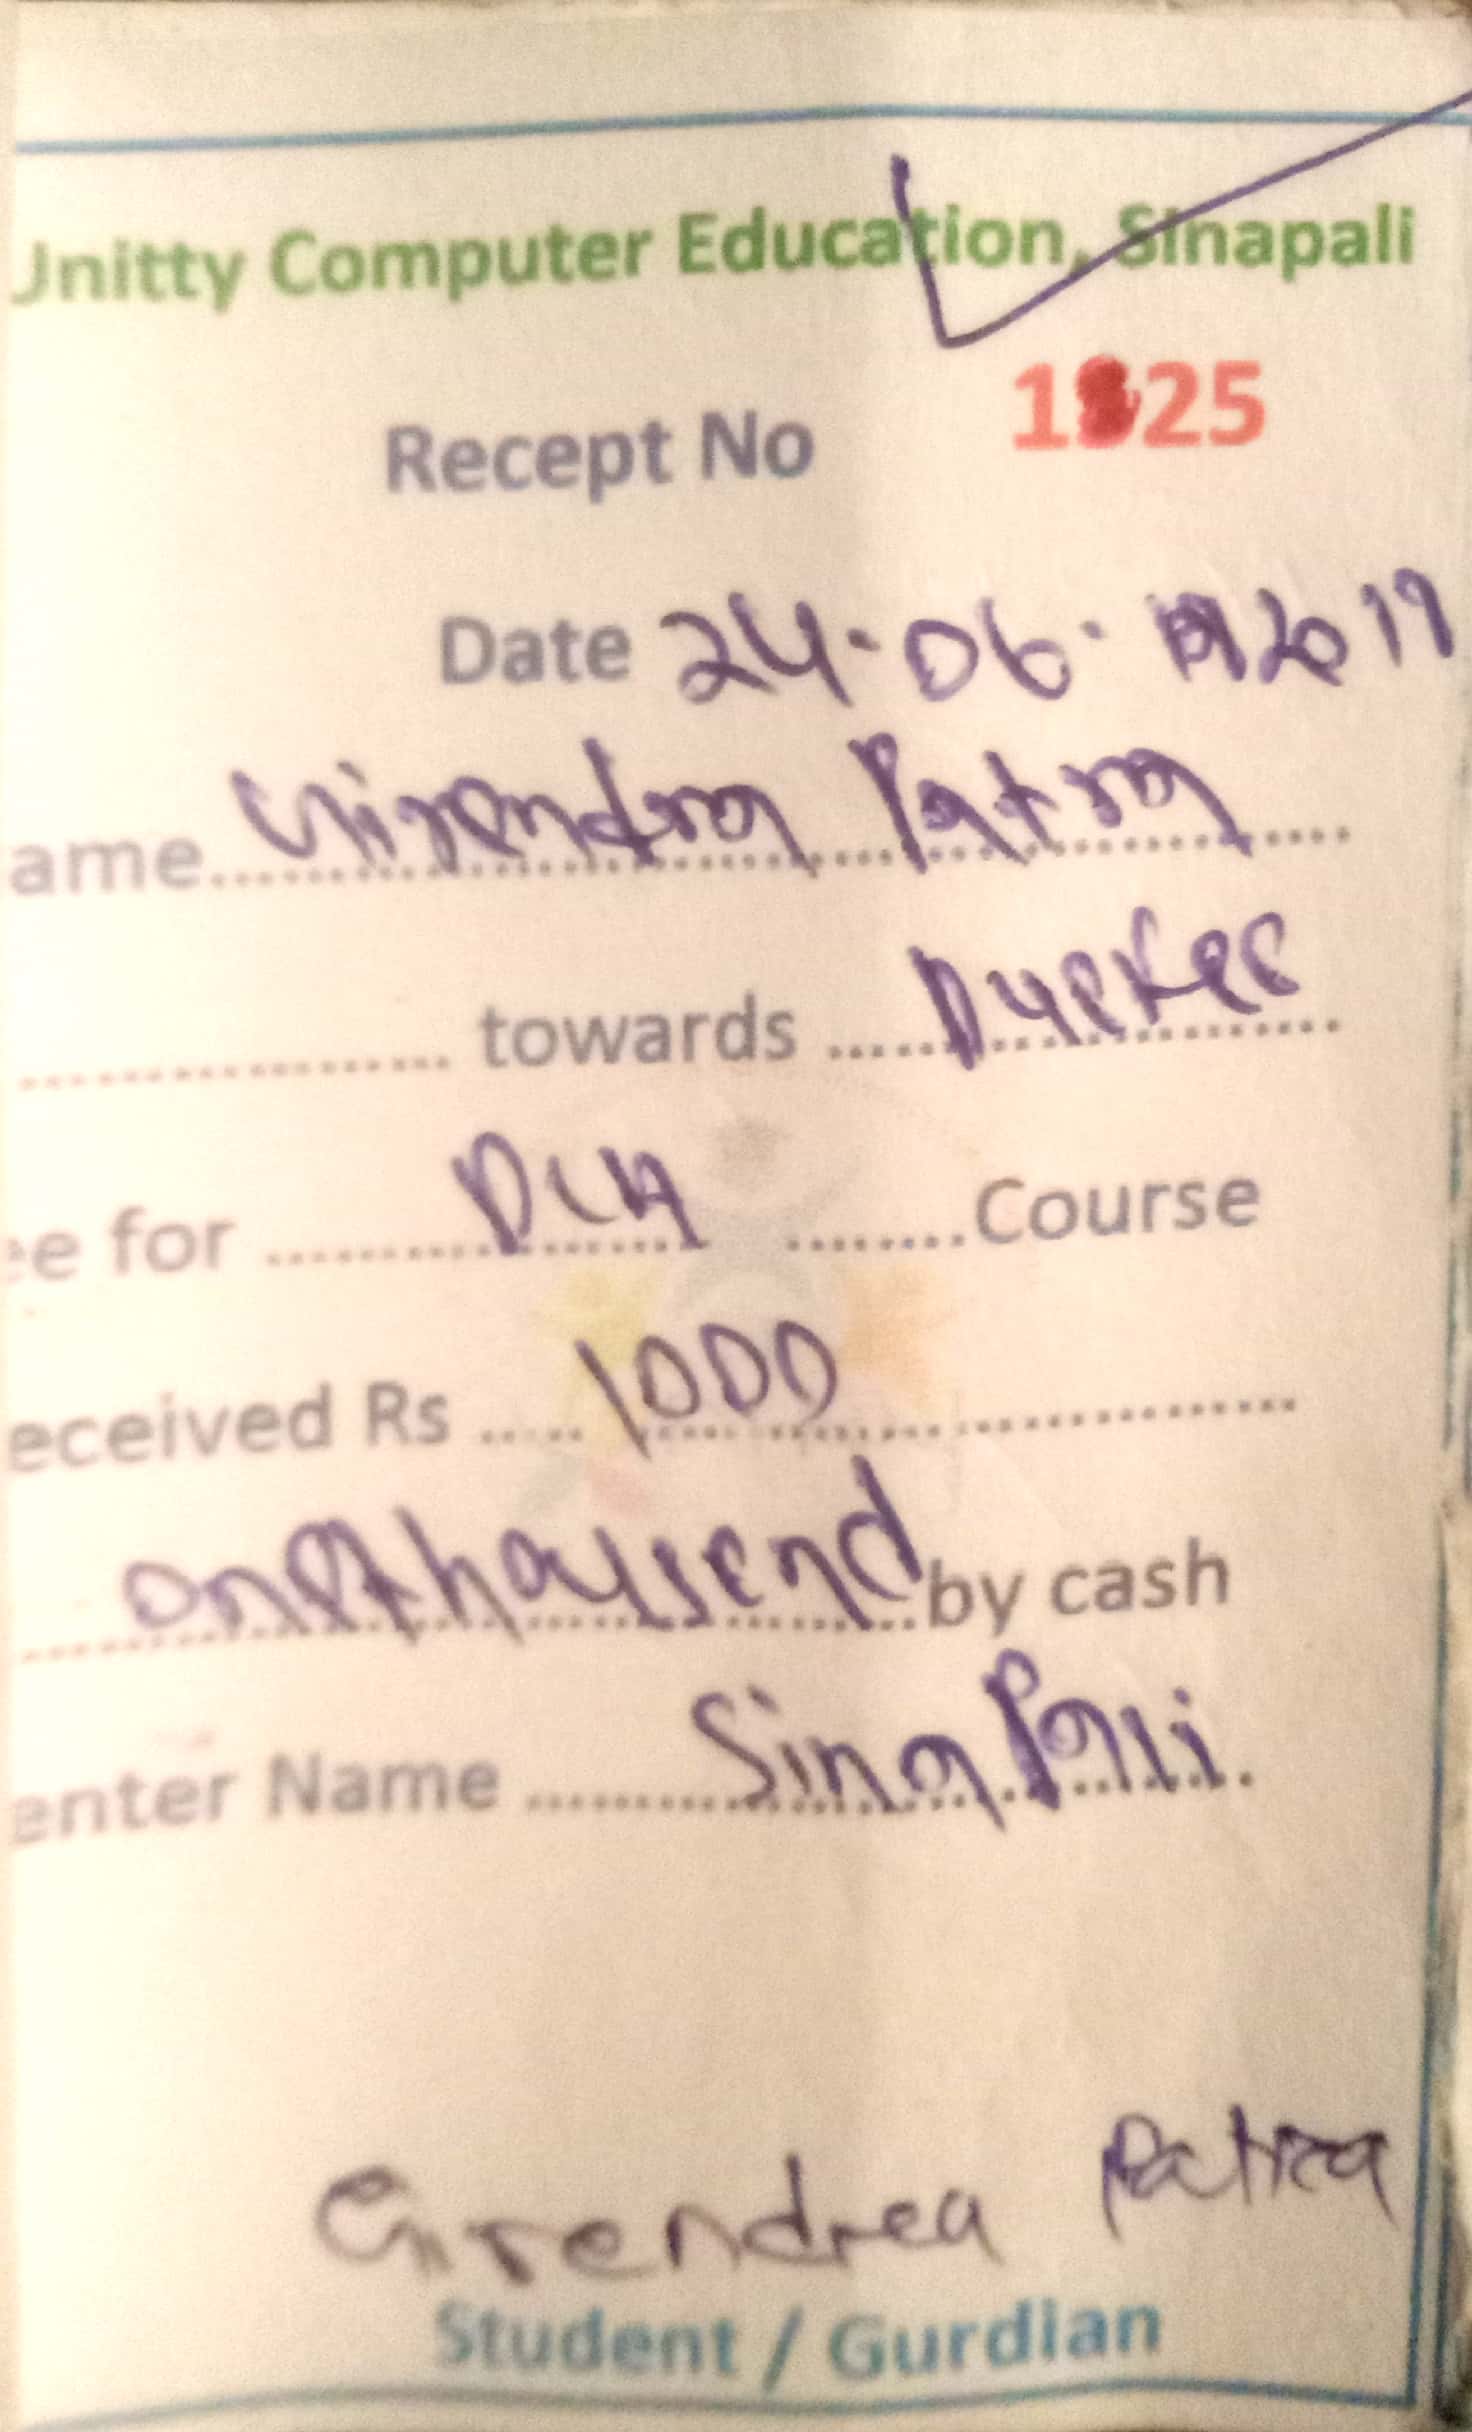 Unitty Computer Education, Sinapali
Recept No 1825
Date 24.06.2019
ame Girendra Patra
towards Duefee
ee for DCA Course
eceived Rs 1000
onethousend by cash
enter Name Sinapali
Girendra Patra
Student / Gurdian